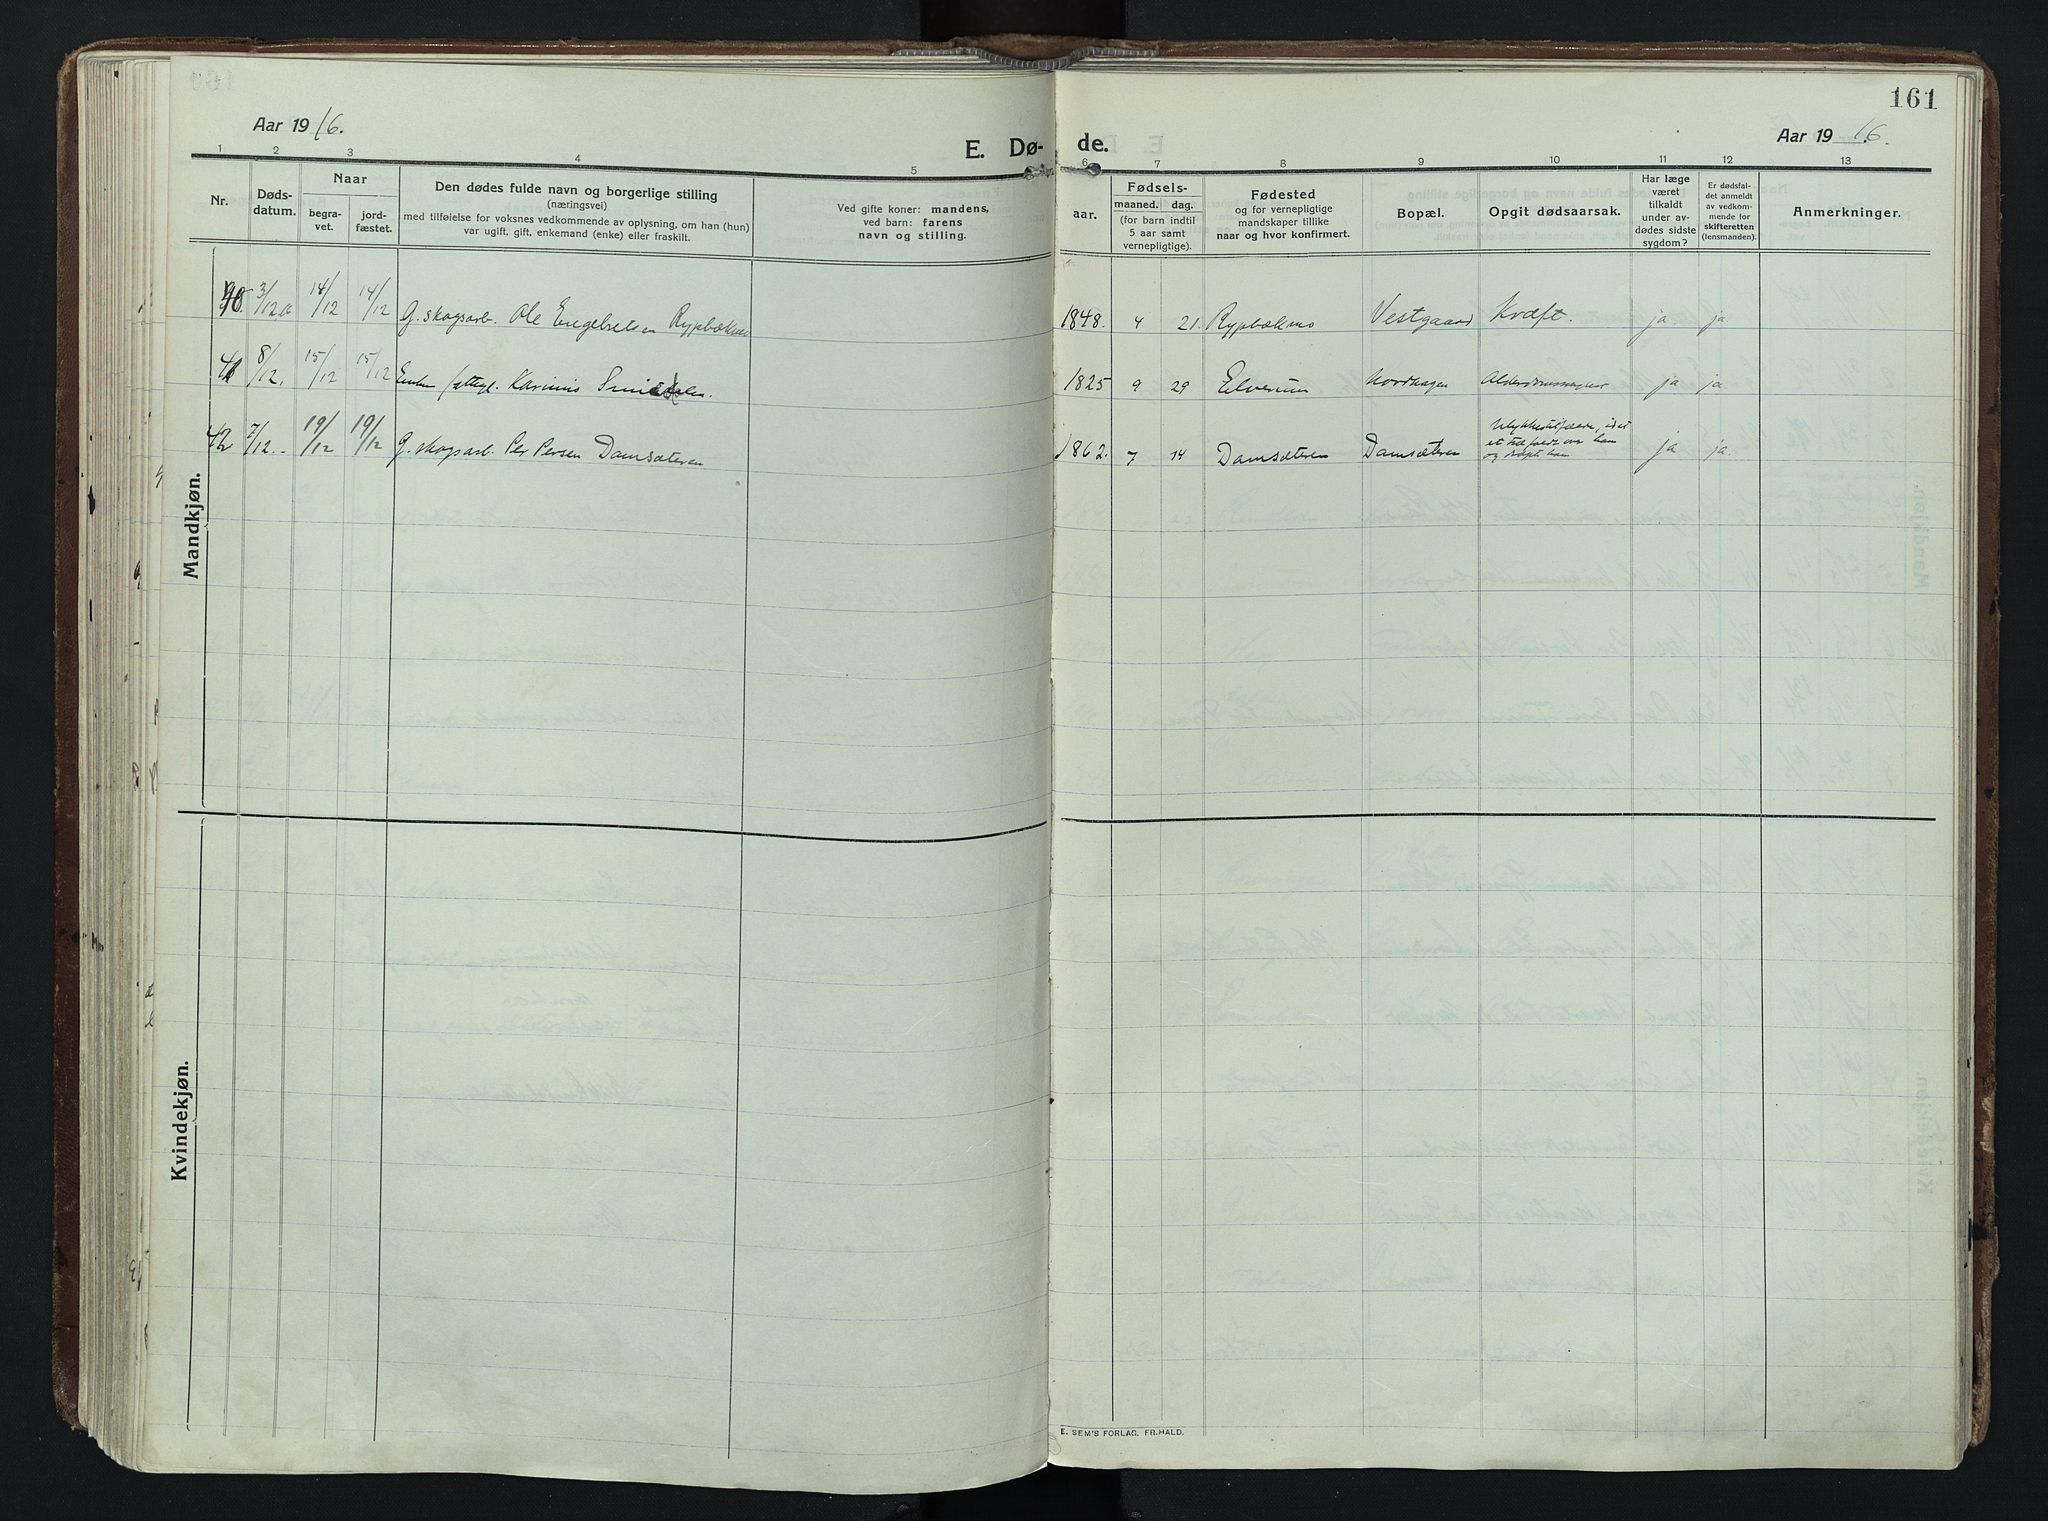 161
Aar 1916.
Aar 1916.
E. Dø-
de.
1 2 3 4 5 6 7 8 9 10 11 12 13
Nr.
Døds-
datum.
Naar
begra-
vet.
jord-
fæstet.
Den dødes fulde navn og borgerlige stilling
(næringsvei)
med tilføielse for voksnes vedkommende av oplysning, om han (hun)
var ugift, gift, enkemand (enke) eller fraskilt.
Ved gifte koner: mandens,
ved barn: farens
navn og stilling.
aar.
Fødsels-
maaned. dag.
(for barn indtil
5 aar samt
vernepligtige).
Fødested
og for vernepligtige
mandskaper tillike
naar og hvor konfirmert.
Bopæl.
Opgit dødsaarsak.
Har læge
været
tilkaldt
under av-
dødes sidste
sygdom?
Er dødsfal-
det anmeldt
av vedkom-
mende for
skifteretten
(lensmanden).
Anmerkninger.
40. 3/12 14/12 14/12 G. skogsarb. Ole Engebretsen Rypbækmo 1848. 4 21. Rypbækmo Vestgaard Kræft. ja ja.
41 8/12. 15/12 15/12 Enkm. 1825 9 29 Elverum Nordhagen ja ja.
42 7/12. 19/12 19/12 G. skogsarb. Per Persen Damsæteren 1862. 7 14 Damsæteren Damsæteren Ulykkestilfælde, idet
et træ faldt over ham
og dræpte ham ja ja.
Mandkjøn.
Kvindekjøn.
E. SEM'S FORLAG. FR.HALD.